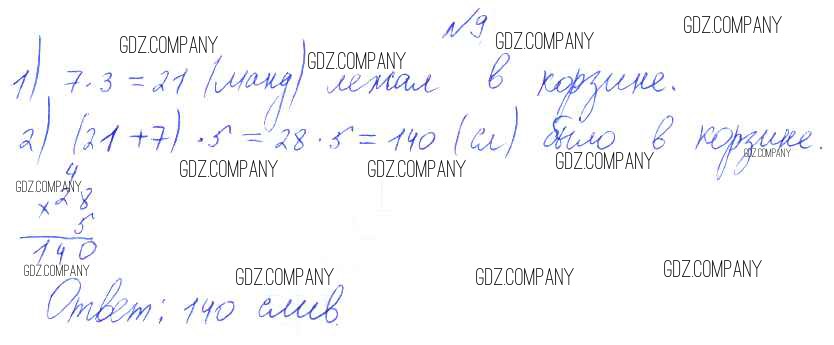 №9
1) 7·3=21 (манд) лежал в корзине.
2) (21+7)·5=28·5=140 (сл) было в корзине.
4
×28
5
140
Ответ: 140 слив.
GDZ.COMPANY
GDZ.COMPANY
GDZ.COMPANY
GDZ.COMPANY
GDZ.COMPANY
GDZ.COMPANY
GDZ.COMPANY
GDZ.COMPANY
GDZ.COMPANY
GDZ.COMPANY
GDZ.COMPANY
GDZ.COMPANY
GDZ.COMPANY